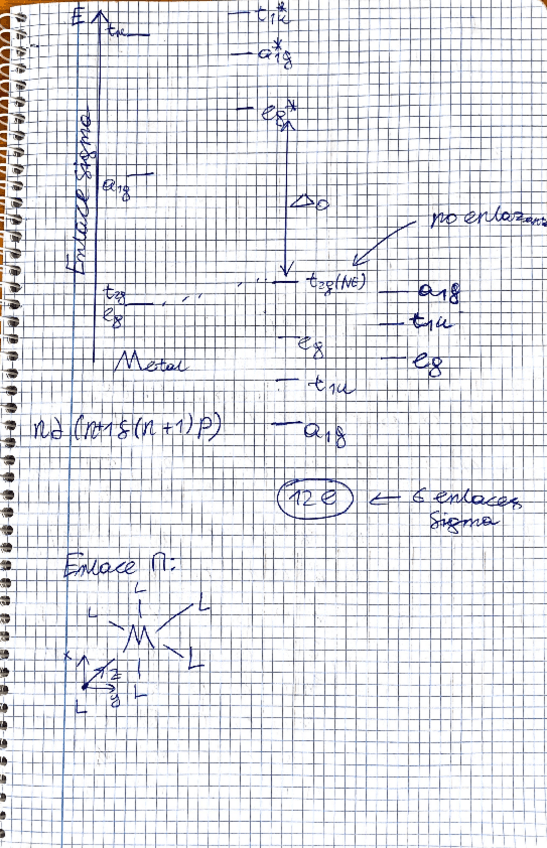 E
t₁ᵤ
t₁ᵤ*
a₁g*
eg*
Enlace Sigma
a₁g
Δo
no enlazante
t₂g
eg
t₂g(NE)
a₁g
t₁ᵤ
eg
eg
Metal
t₁ᵤ
nd (n+1)s(n+1)p)
a₁g
12 e
← 6 enlaces
sigma
Enlace Π:
L
L
L
M
L
x
z
y
L
L